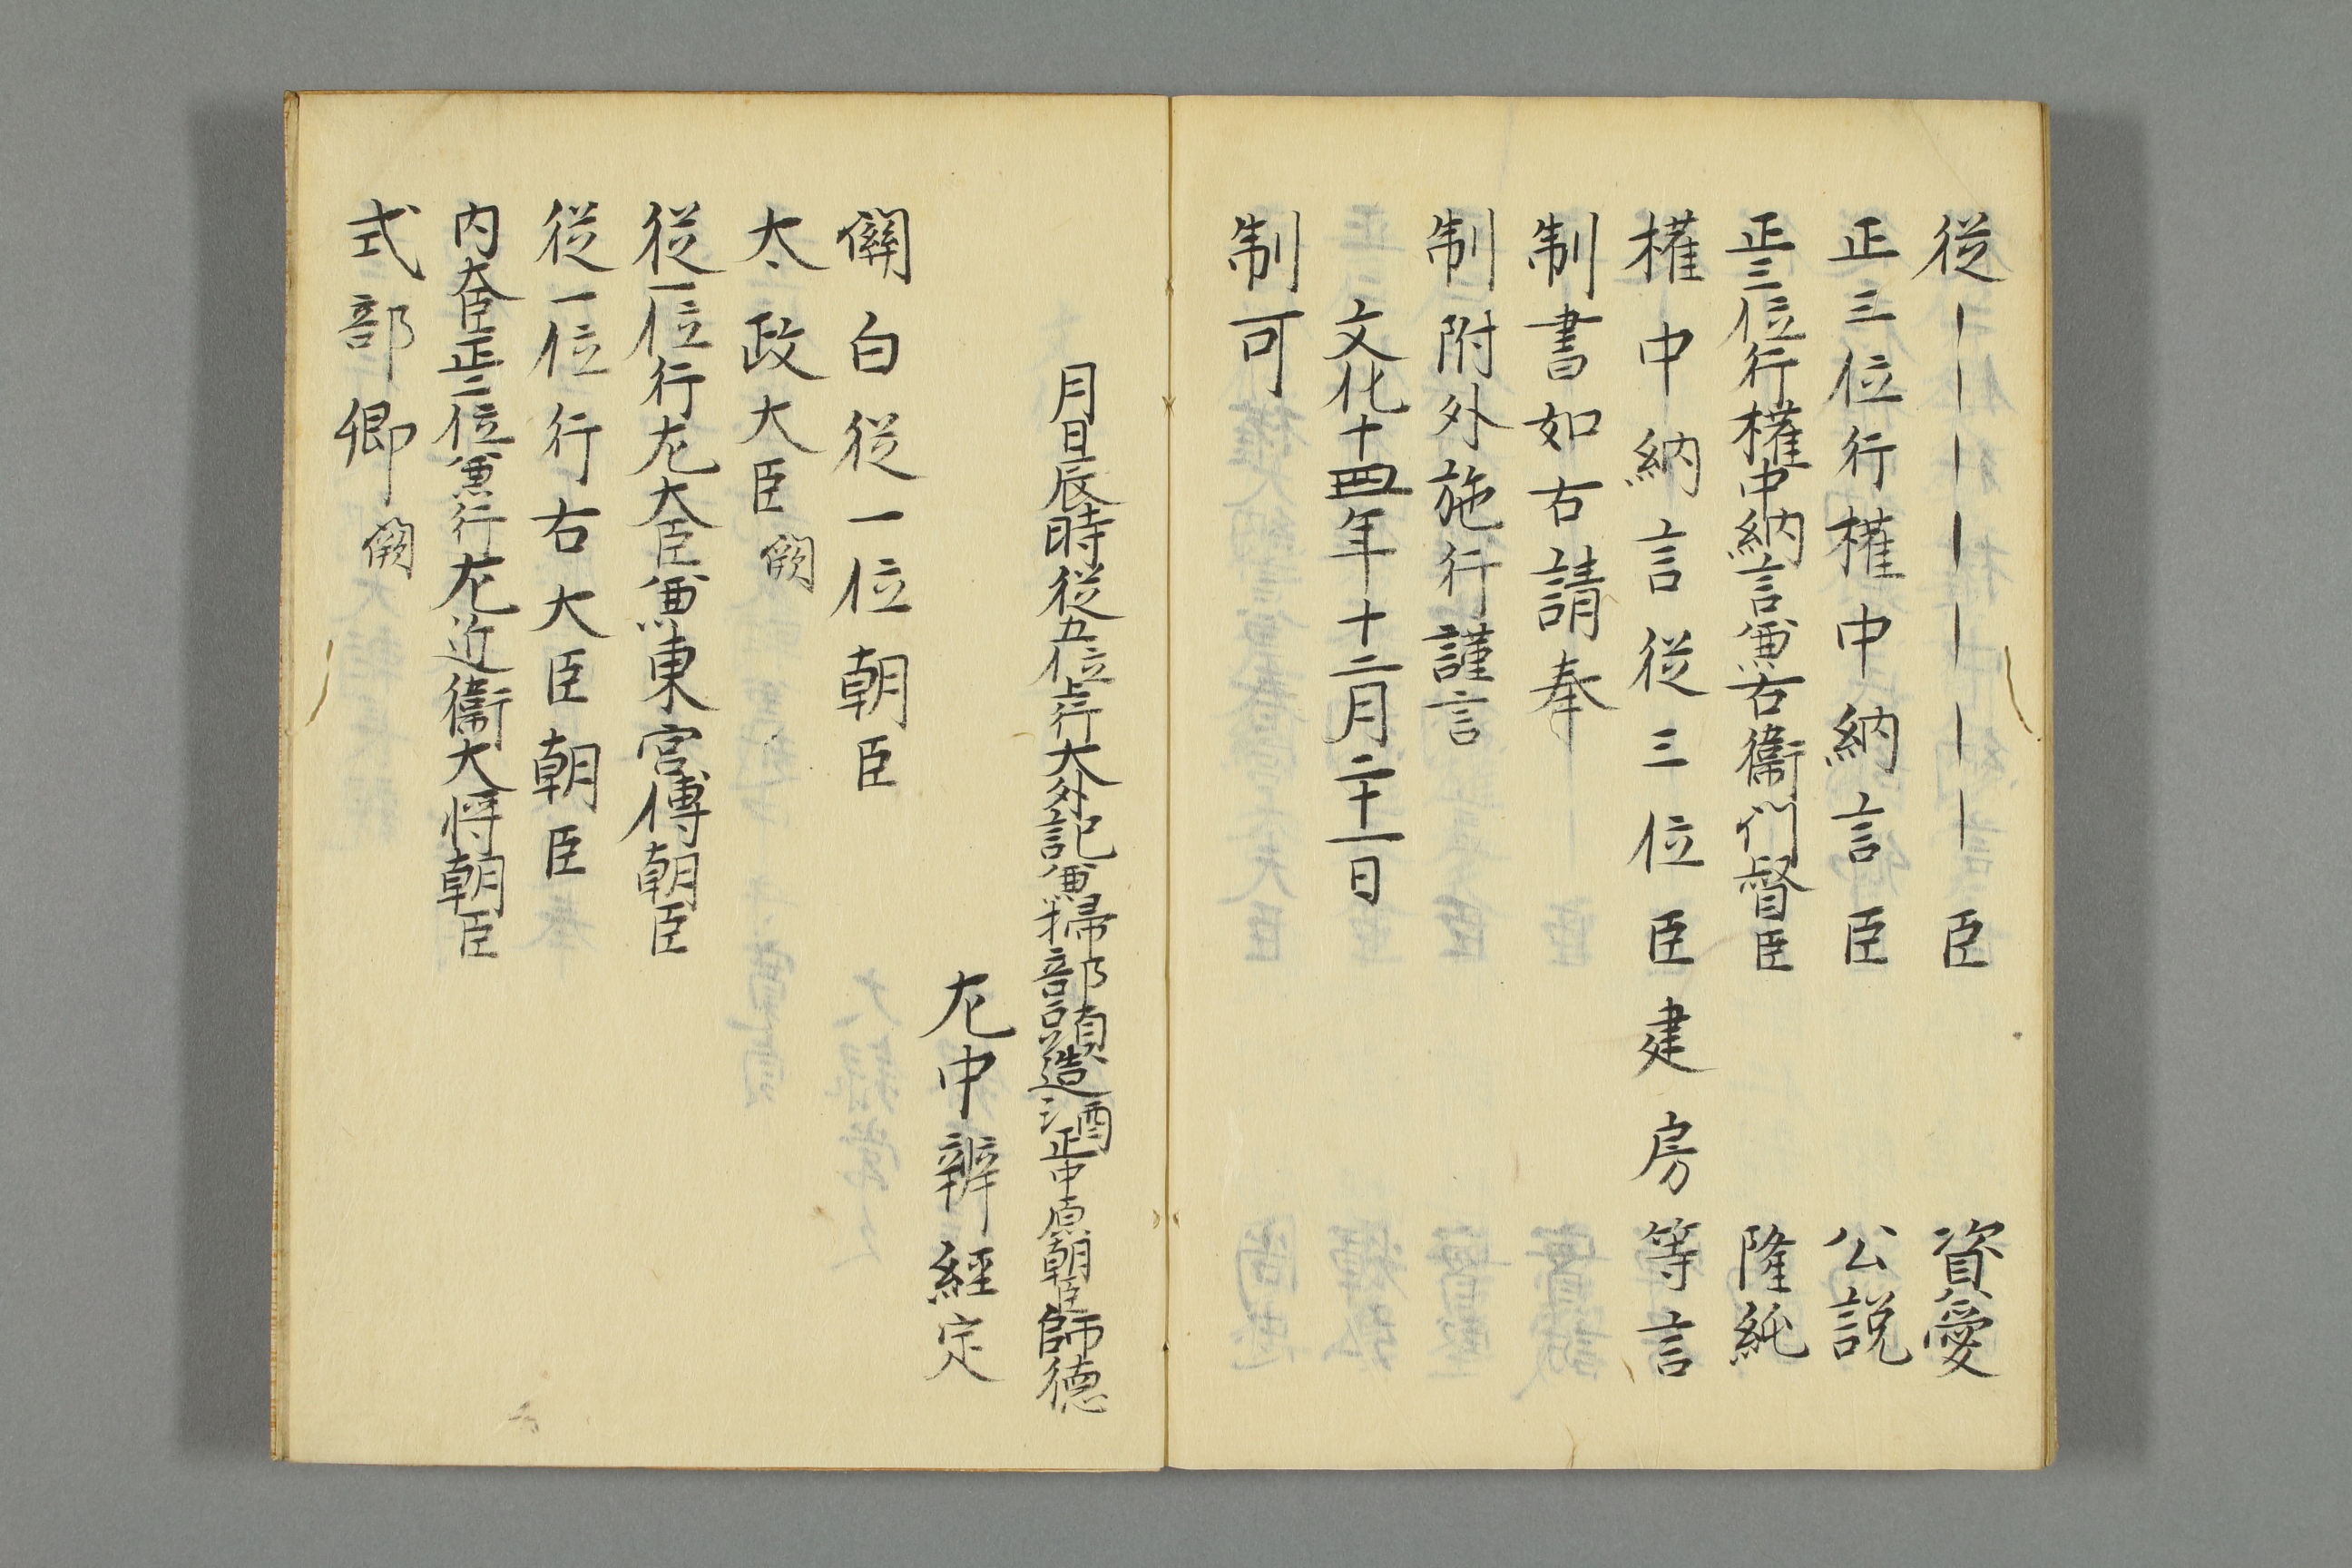 従｜｜｜｜｜｜臣 資愛
正三位行權中納言臣 公説
正三位行權中納言兼右衞門督臣 隆純
權中納言從三位臣建房等言
制書如右請奉
制附外施行謹言
文化十四年十二月二十一日
制可
月日辰時從五位上行大外記兼掃部頭造酒正中原朝臣師德
左中辨經定
關白從一位朝臣
太政大臣闕
從一位行左大臣兼東宮傅朝臣
從一位行右大臣朝臣
内大臣正二位兼行左近衞大将朝臣
式部卿闕